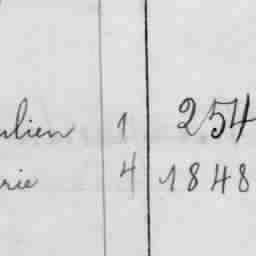 ulien 1 254
rie 4 1848